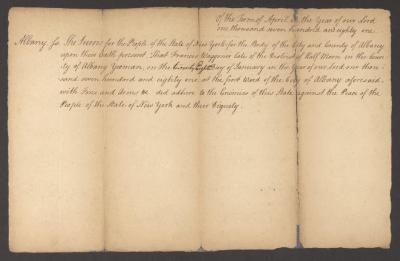 of the Term of April in the Year of our Lord
one thousand seven hundred and eighty one
Albany ss The Jurors for the People of the State of New York for the Body of the City and County of Albany
upon their Oath present, That Francis Waggoner late of the District of Half Moon in the Coun-
ty of Albany Yeoman, on the day of January in the Year of our Lord one thou
sand seven hundred and eighty one at the first Ward of the City of Albany aforesaid
with Force and Arms &c did adhere to the Enemies of this State against the Peace of the
People of the State of New York and their Dignity.